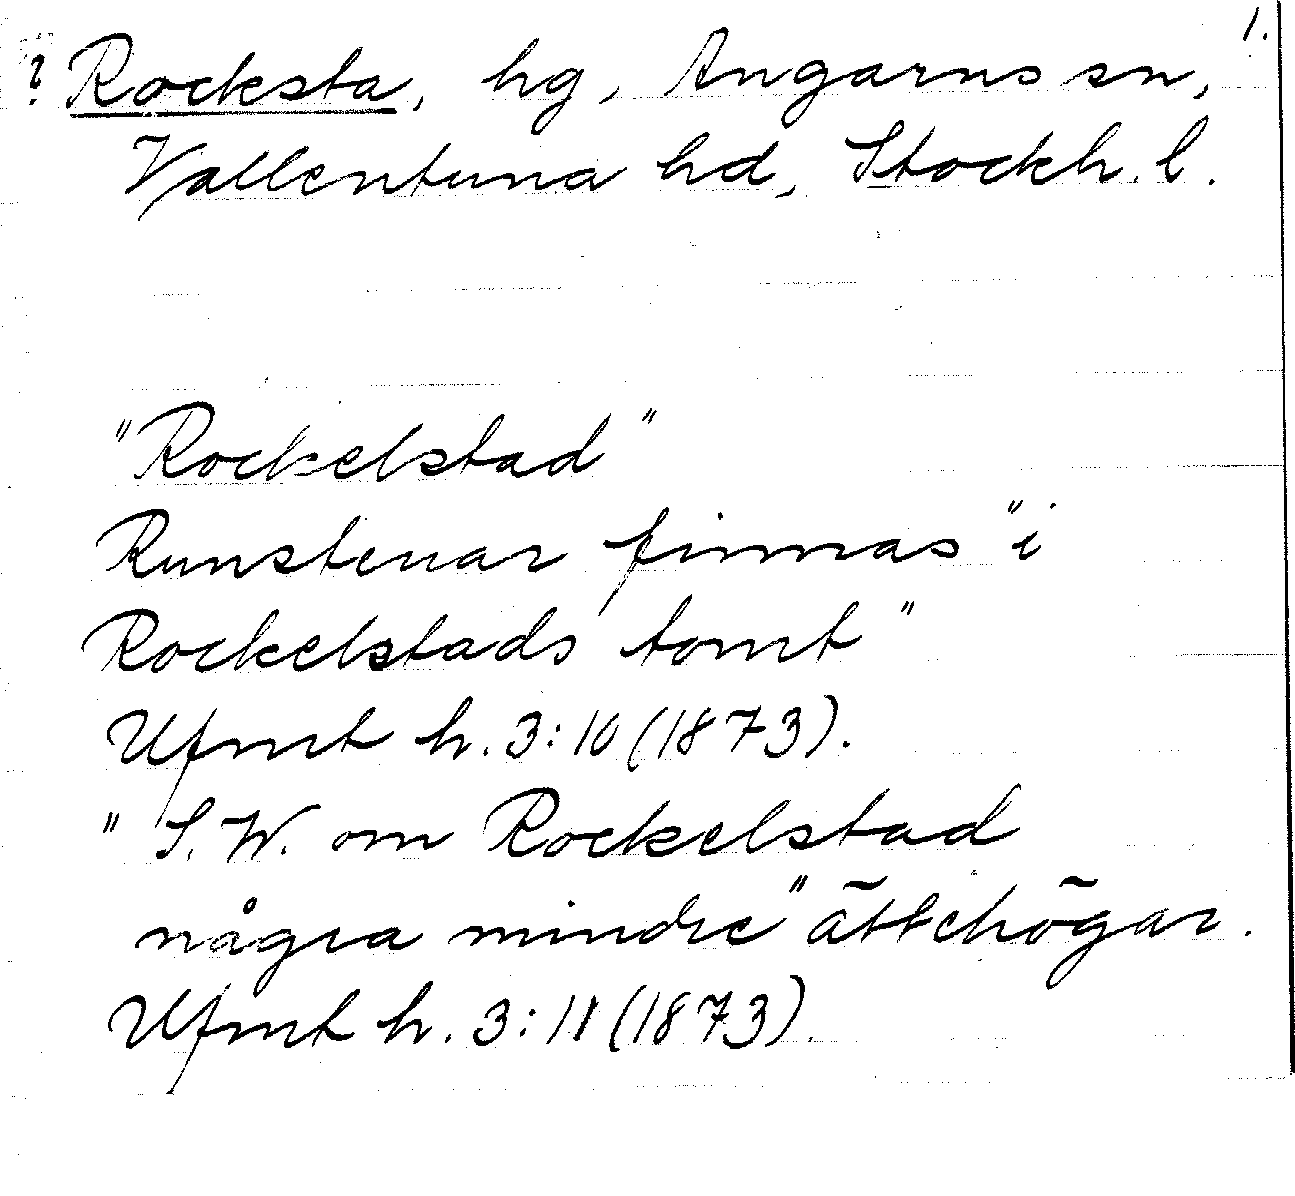 1.
? Rocksta, hg, Angarns sn,
Vallentuna hd, Stockh. l.
"Rockelstad"
Runstenar finnas "i
Rockelstads tomt"
Ufmt h. 3:10 (1873).
" S.W. om Rockelstad
några mindre" ättehögar.
Ufmt h. 3:11 (1873).